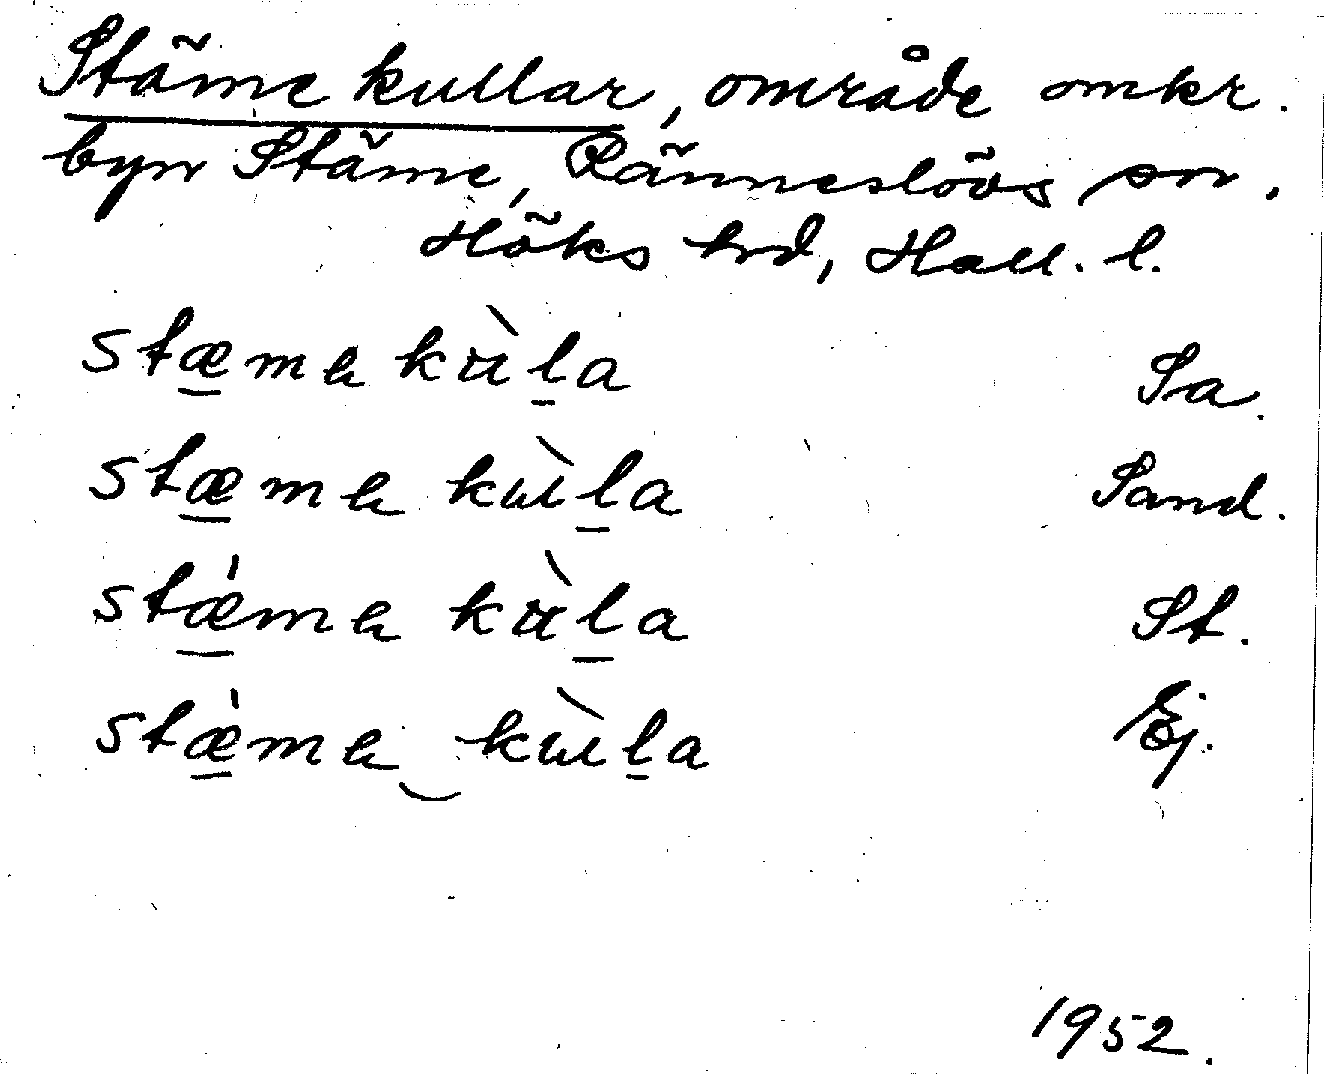 Stäme kullar, område omkr.
byn Stäme, Ränneslövs sn.
Höks hrd, Hall. l.
stæ̱mə kùḻa Sa.
stæ̱mə kùḻa Sand.
stǽ̱mə kùḻa St.
stǽ̱mə‿kùḻa Ej.
1952.